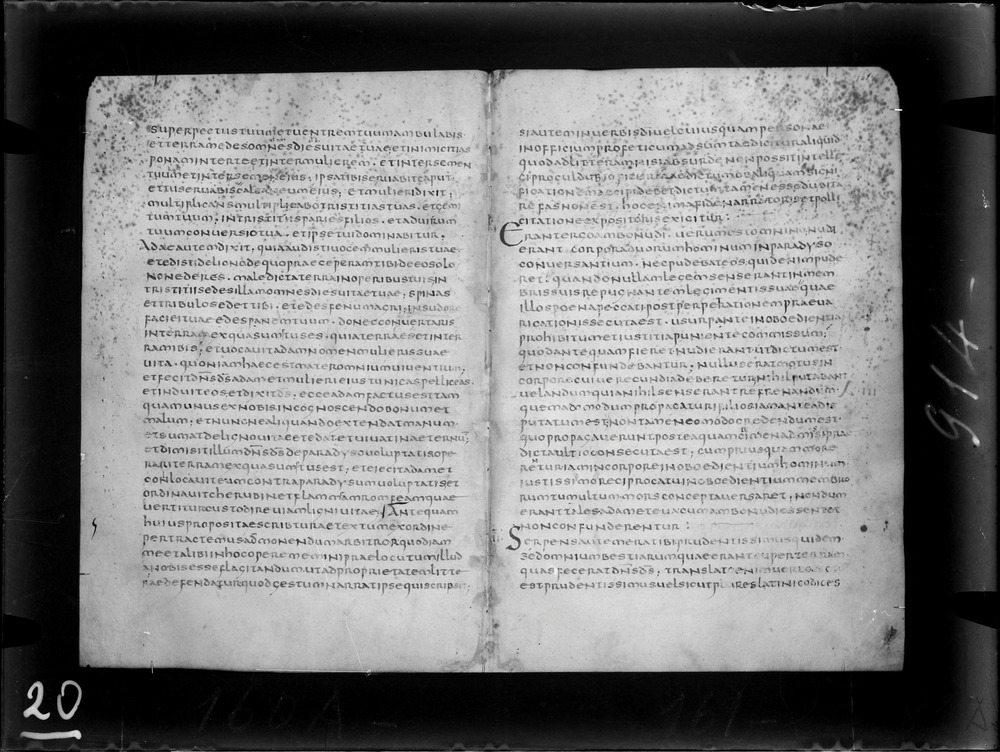 super pectus tuum et ventrem tuum ambulabis
et terram edes omnes dies vitae tuae et inimicitias
ponam inter te et inter mulierem. et inter semen
tuum et inter semen eius; ipsa tibi servabit caput
et tu servabis calcaneum eius; et mulieri dixit;
multiplicans multiplicabo tristitias tuas. et gem
tum tuum; in tristitiis paries filios. et ad virum
tuum conversio tua. et ipse tui dominabitur.
Adae autem dixit, quia audisti vocem mulieris tuae
et edisti de ligno de quo praeceperam tibi de eo solo
non ederes. maledicta terra in operibus tuis in
tristitiis edes illam omnes dies vitae tuae; spinas
et tribulos edet tibi. et edes fenum agri; in sudore
faciei tuae edes panem tuum. donec convertaris
in terram ex qua sumtus es. quia terra es et in ter
ram ibis; et vocavit adam nomen mulieris suae
vita. quoniam haec est mater omnium viventium;
et fecit dns ds adam et mulieri eius tunicas pelliceas
et induit eos. et dixit ds; ecce adam factus est tam
quam unus ex nobis in cognoscendo bonum et
malum; et nunc ne aliquando extendat manum
et sumat de ligno vitae et edat et vivat in aeternum
et dimisit illum dns ds de paradyso voluptatis ope
rari terram ex qua sumtus est; et eiecit adam et
conlocavit eum contra paradysum voluptatis et
ordinavit cherubin et flammam romfeam quae
vertitur custodire viam ligni vitae; Antequam
huius propositae scripturae textum ex ordine
pertractemus admonendum arbitror quod iam
me et alibi in hoc opere memini praelocutum illud
a nobis esse flagitandum ut ad proprietatem litte
rae defendatur quod gestum narrat ipse qui scribsit;
si autem in verbis dī vel cuiusquam personae
in officium propheticum adsumtae dicitur aliquid
quod ad litteram nisi absurde non possit intelle
gi procul dubio figurate dictum ob aliquam signi
ficationem accipi debet dictum tamen esse dubita
re fas non est. hoc enim a fide narratoris et polli
citatione expositoris exigitur:
Erant ergo ambo nudi. verum est omnino nudi
erant corpora duorum hominum in paradyso
conversantium. nec pudebat eos. quid enim pude
ret. quando nullam legem senserant in mem
bris suis repugnantem legi mentis suae quae
illos poena peccati post perpetrationem praeva
ricationis secuta est. usurpante inoboedientia
prohibitum et iustitia puniente commissum;
quod antequam fieret nudi erant ut dictum est
et non confundebantur; nullus erat motus in
corpore cui verecundia deberetur. nihil putabant
velandum quia nihil senserant refrenandum;
quemadmodum propagaturi filios iam ante dis
putatum est; non tamen eo modo credendum est
quo propagaverunt postea quam crimen admissi prae
dicta ultio consecuta est; cum priusquam more
rentur iam in corpore inoboedientium hominum
iustissimo reciprocatu inoboedientium membro
rum tumultum mors concepta versaret; nondum
erant tales adam et eva cum ambo nudi essent et
non confunderentur:
Serpens autem erat ibi prudentissimus quidem
sed omnium bestiarum quae erant super terram
quas fecerat dns ds; translato enim verbo dictum
est prudentissimus vel sicut plures latini codices
914
20